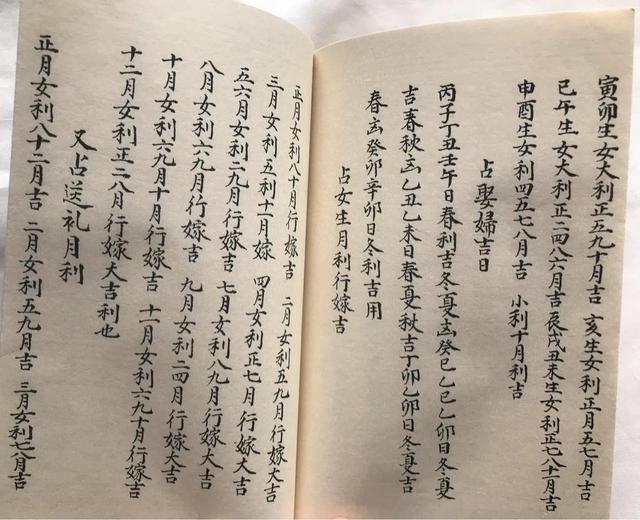 寅卯生女大利正五九十月吉 亥生女利正月五七月吉
巳午生女大利正二四八六月吉辰戌丑未生女利正七八十月吉
申酉生女利四五七八月吉 小利十月利吉
占娶婦吉日
丙子丁丑壬午日春利吉冬夏凶癸巳乙巳乙卯日冬夏
吉春秋凶乙丑乙未日春夏秋吉丁卯乙卯日冬夏吉
春凶癸卯辛卯日冬利吉用
占女生月利行嫁吉
正月女利八十月行嫁吉 二月女利五九月行嫁吉
三月女利五十一月嫁 四月女利正七月行嫁大吉
五六月女利二九月行嫁吉 七月女利八九月行嫁大吉
八月女利六九月行嫁吉 九月女利二四月行嫁大吉
十月女利六九月十月行嫁吉 十一月女利六九十月行嫁吉
十二月女利正二八月行嫁大吉利也
又占送礼月利
正月女利八十二月吉 二月女利五九月吉 三月女利七八月吉